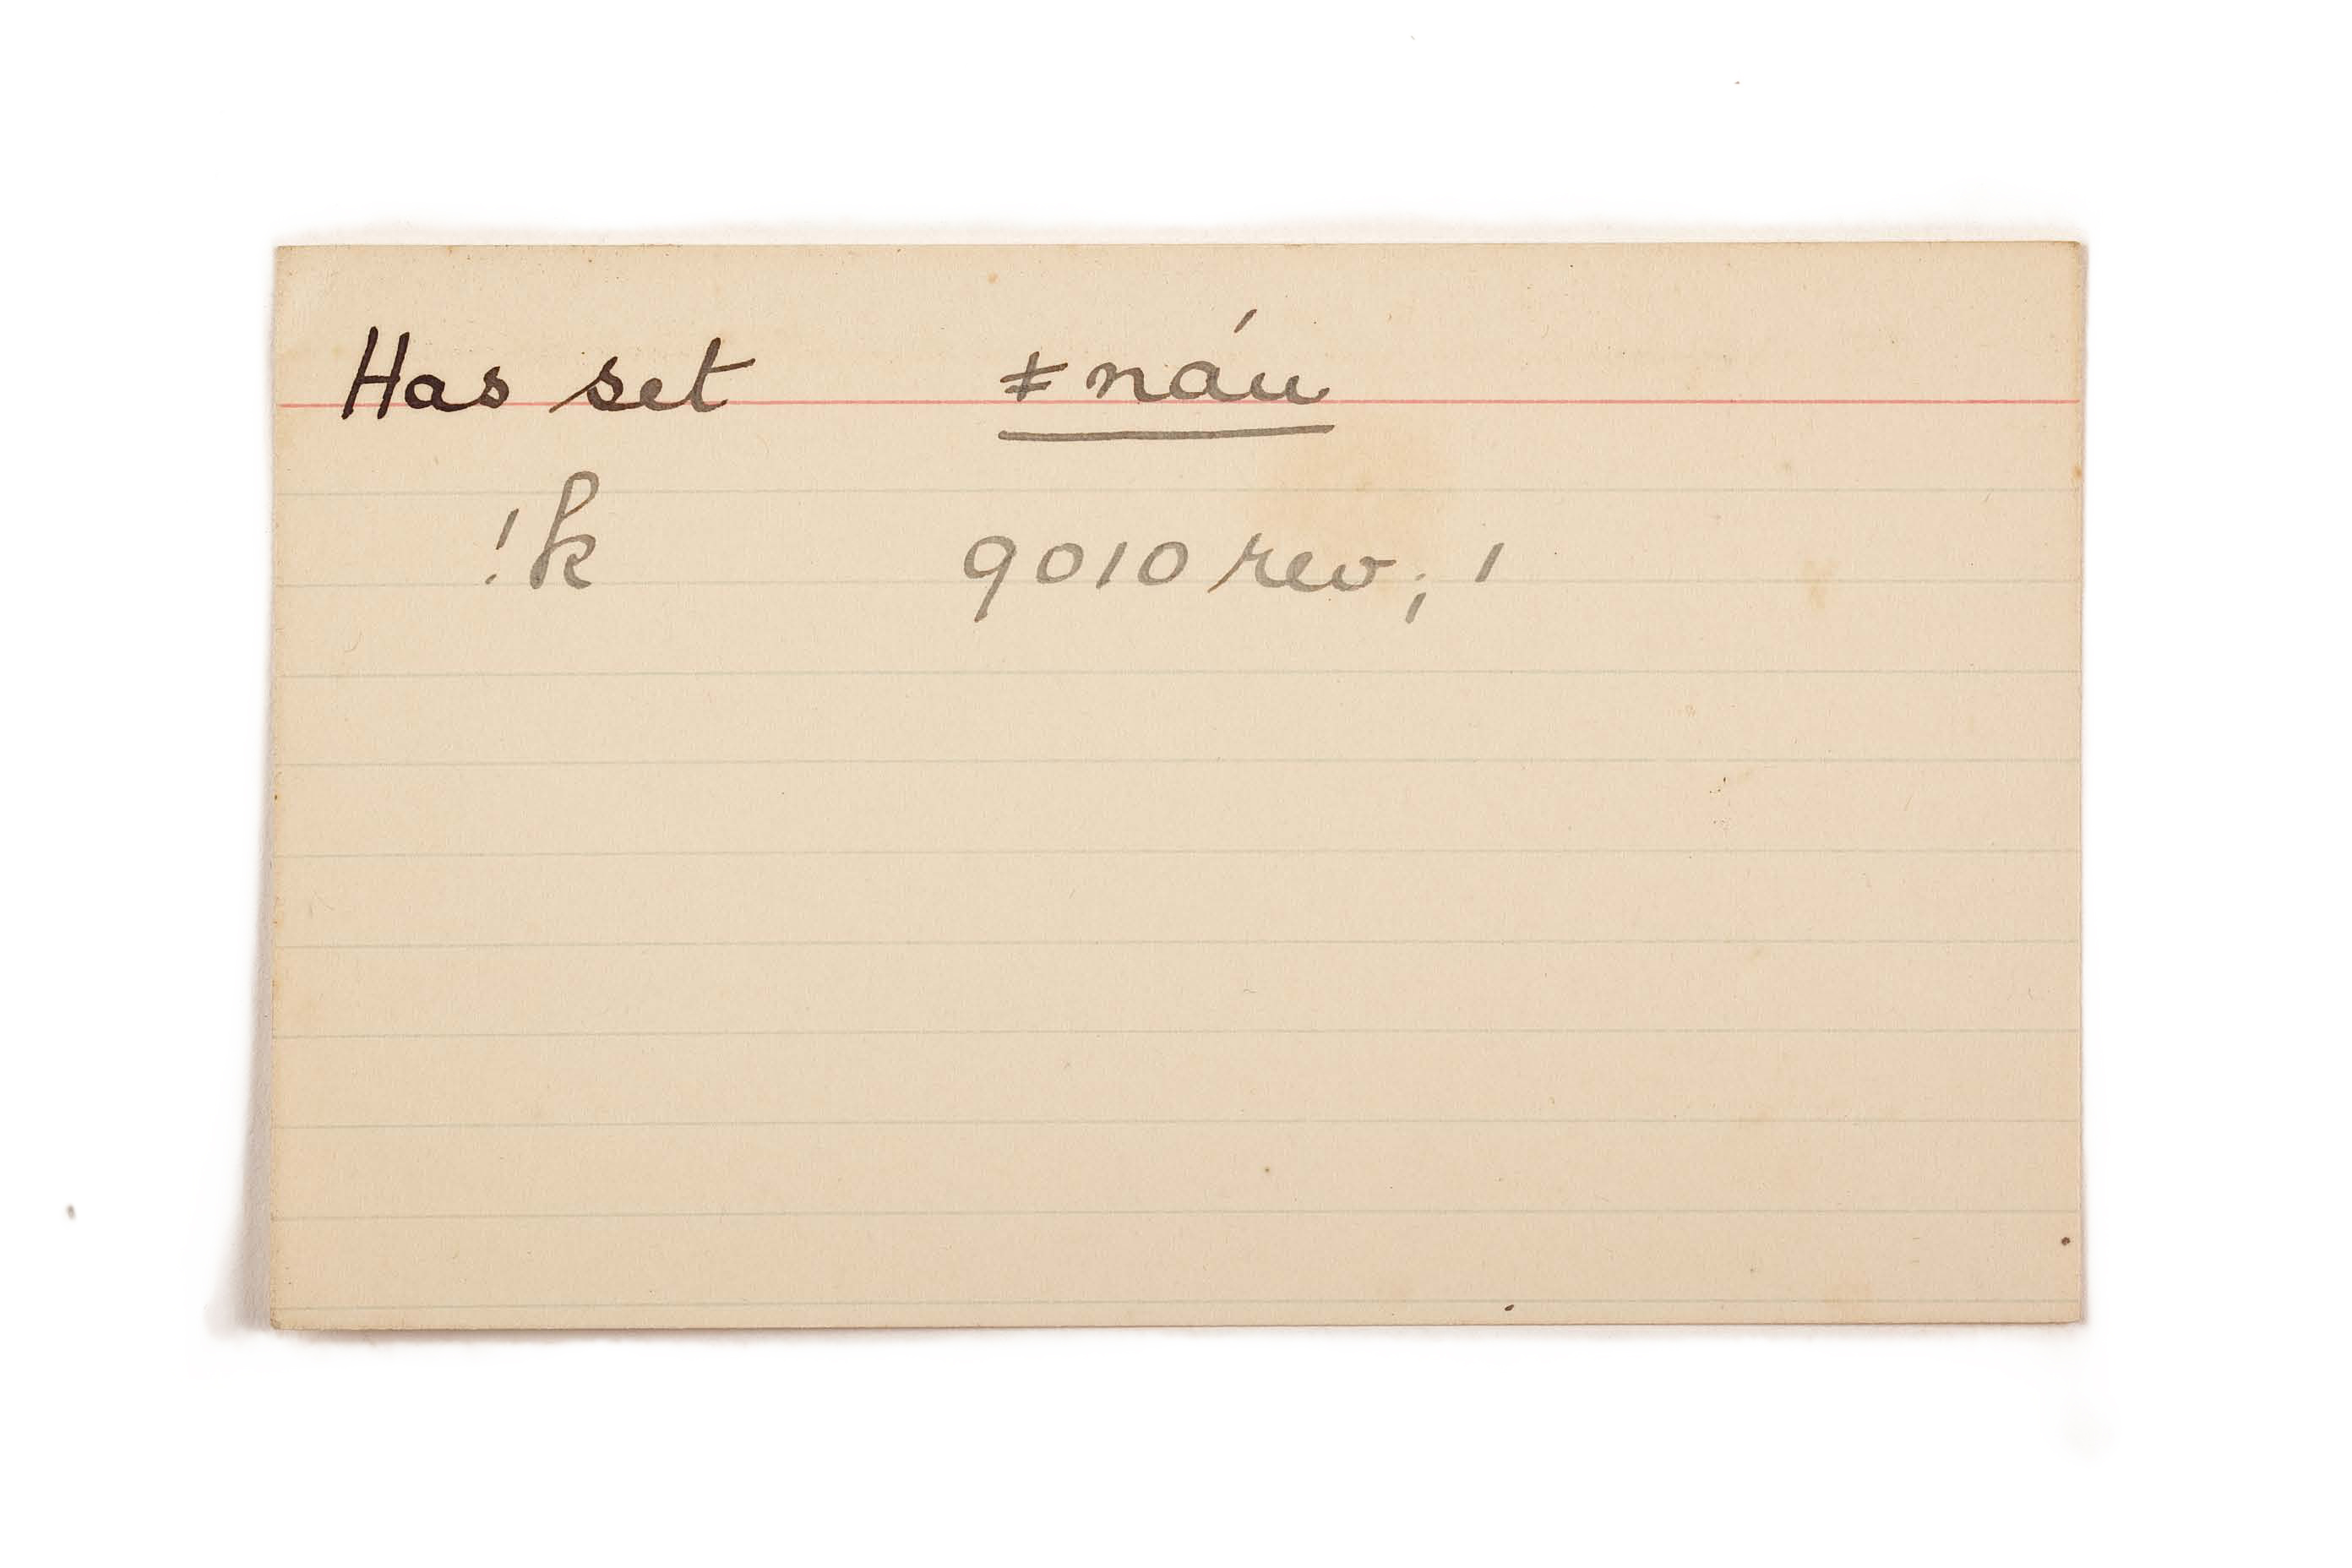 Has set ǂnáu
!k 9010 rev; 1